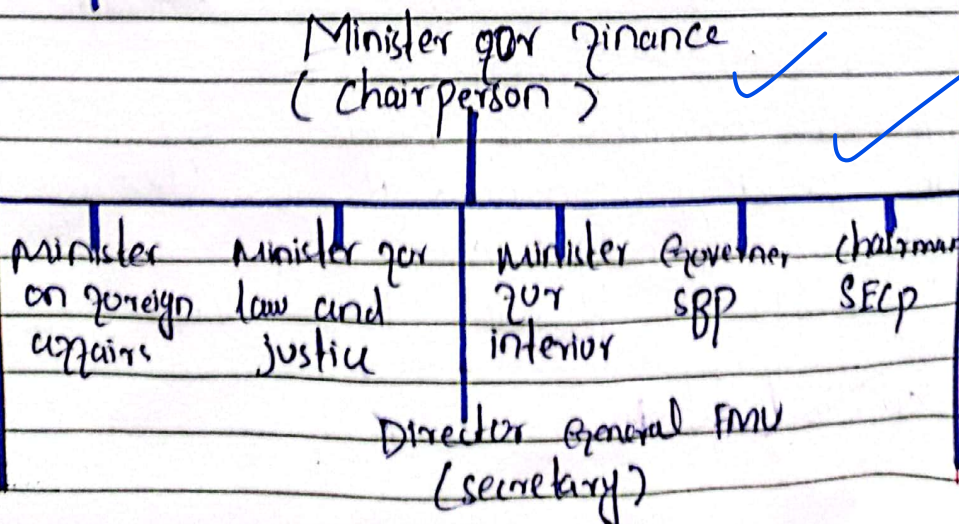 Minister for Finance
(Chairperson)
Minister on foreign affairs
Minister for law and justice
Minister for interior
Governer SBP
Chairman SECP
Director General FMU
(secretary)